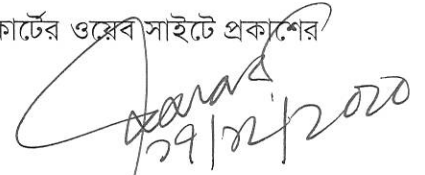 কার্টের ওয়েব সাইটে প্রকাশের
১৭/১২/২০২০